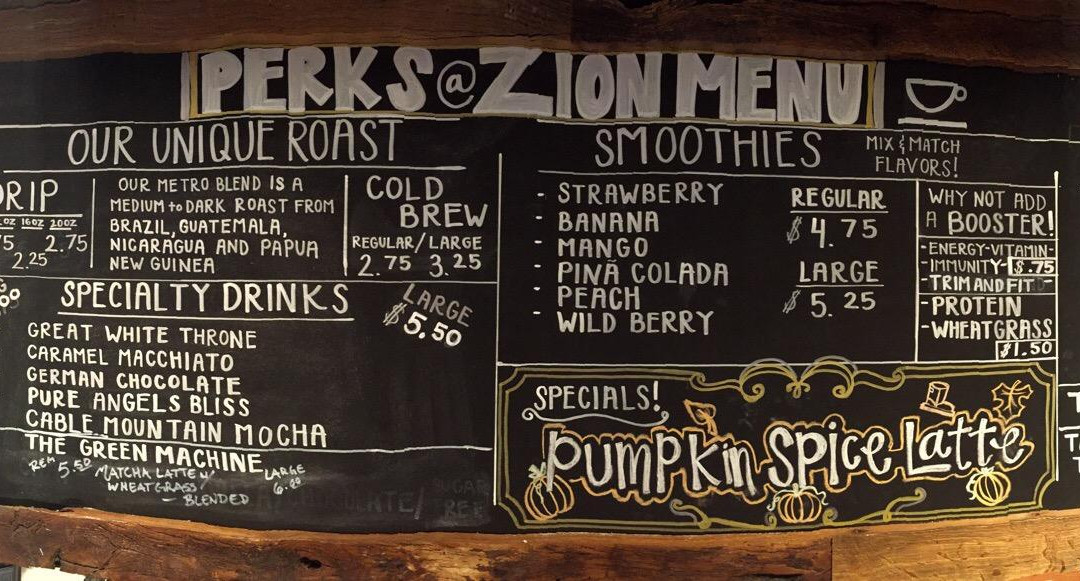 PERKS @ ZION MENU
OUR UNIQUE ROAST
RIP
OZ 16OZ 20OZ
5 2.75
2.25
OUR METRO BLEND IS A
MEDIUM to DARK ROAST FROM
BRAZIL, GUATEMALA,
NICARAGUA AND PAPUA
NEW GUINEA
COLD
BREW
REGULAR/LARGE
2.75 3.25
SPECIALTY DRINKS
LARGE
$5.50
GREAT WHITE THRONE
CARAMEL MACCHIATO
GERMAN CHOCOLATE
PURE ANGELS BLISS
CABLE MOUNTAIN MOCHA
THE GREEN MACHINE
5.50
MATCHA LATTE W/
WHEATGRASS/
BLENDED
LARGE
SMOOTHIES
MIX & MATCH
FLAVORS!
- STRAWBERRY
- BANANA
- MANGO
- PINÃ COLADA
- PEACH
- WILD BERRY
REGULAR
$4.75
LARGE
$5.25
WHY NOT ADD
A BOOSTER!
-ENERGY-VITAMIN-
-IMMUNITY- $.75
-TRIM AND FIT
-PROTEIN
-WHEATGRASS
$1.50
SPECIALS!
Pumpkin Spice Latte